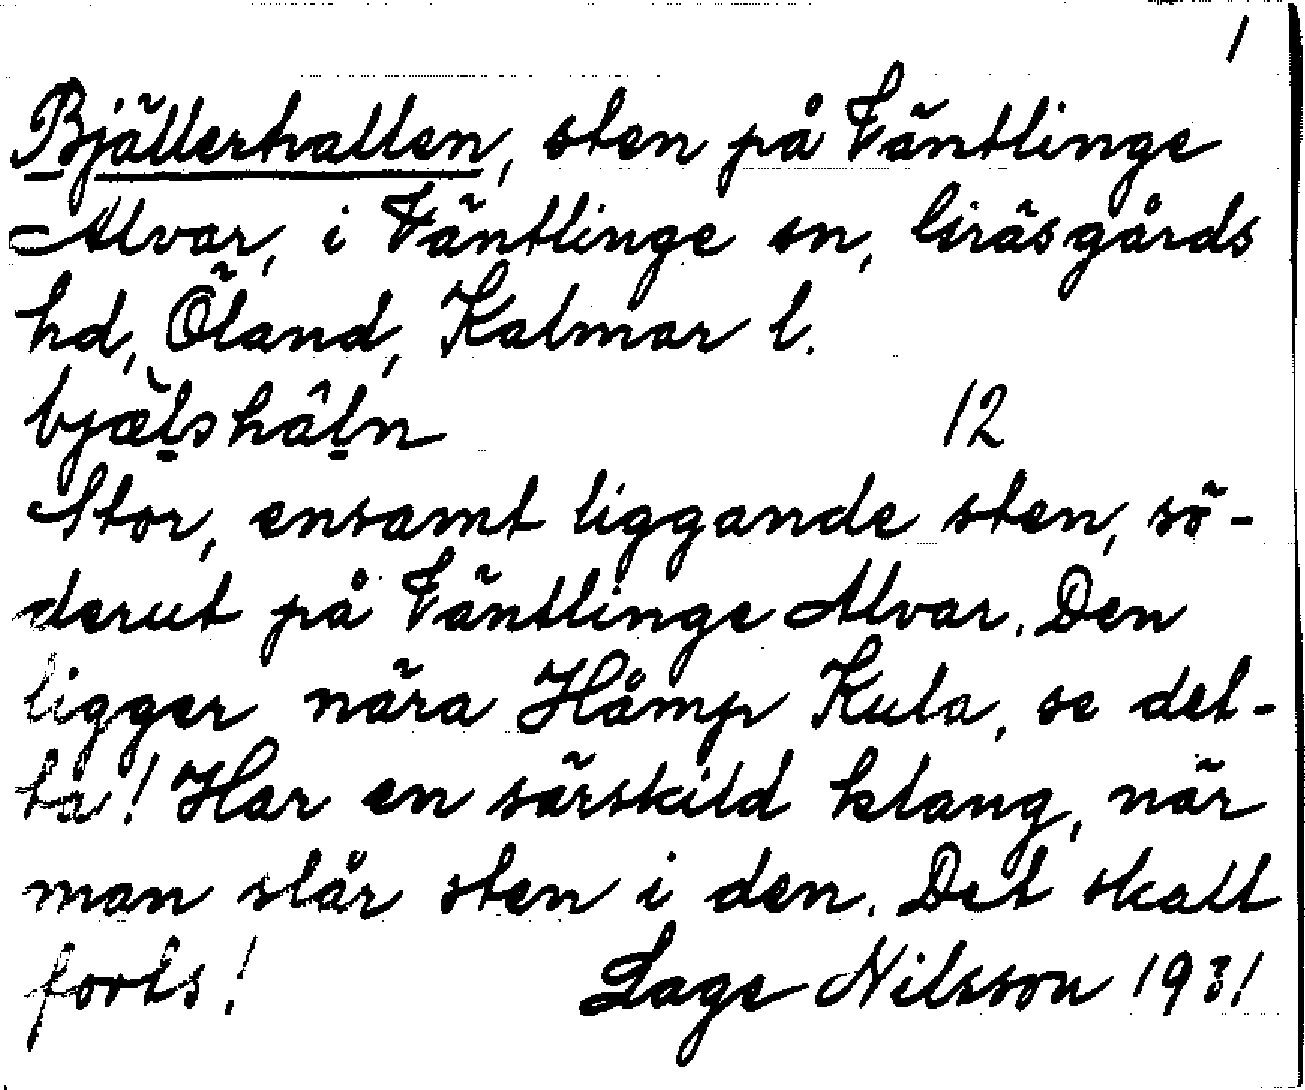 1
Bjällerhallen, sten på Väntlinge
Alvar, i Väntlinge sn, Gräsgårds
hd, Öland, Kalmar l.
bjæ̀ḷshâḷn 12
Stor, ensamt liggande sten, sö-
derut på Väntlinge Alvar. Den
ligger nära Håmp Kula, se det-
ta! Har en särskild klang, när
man slår sten i den. Det skall
forts! Lage Nilsson 1931